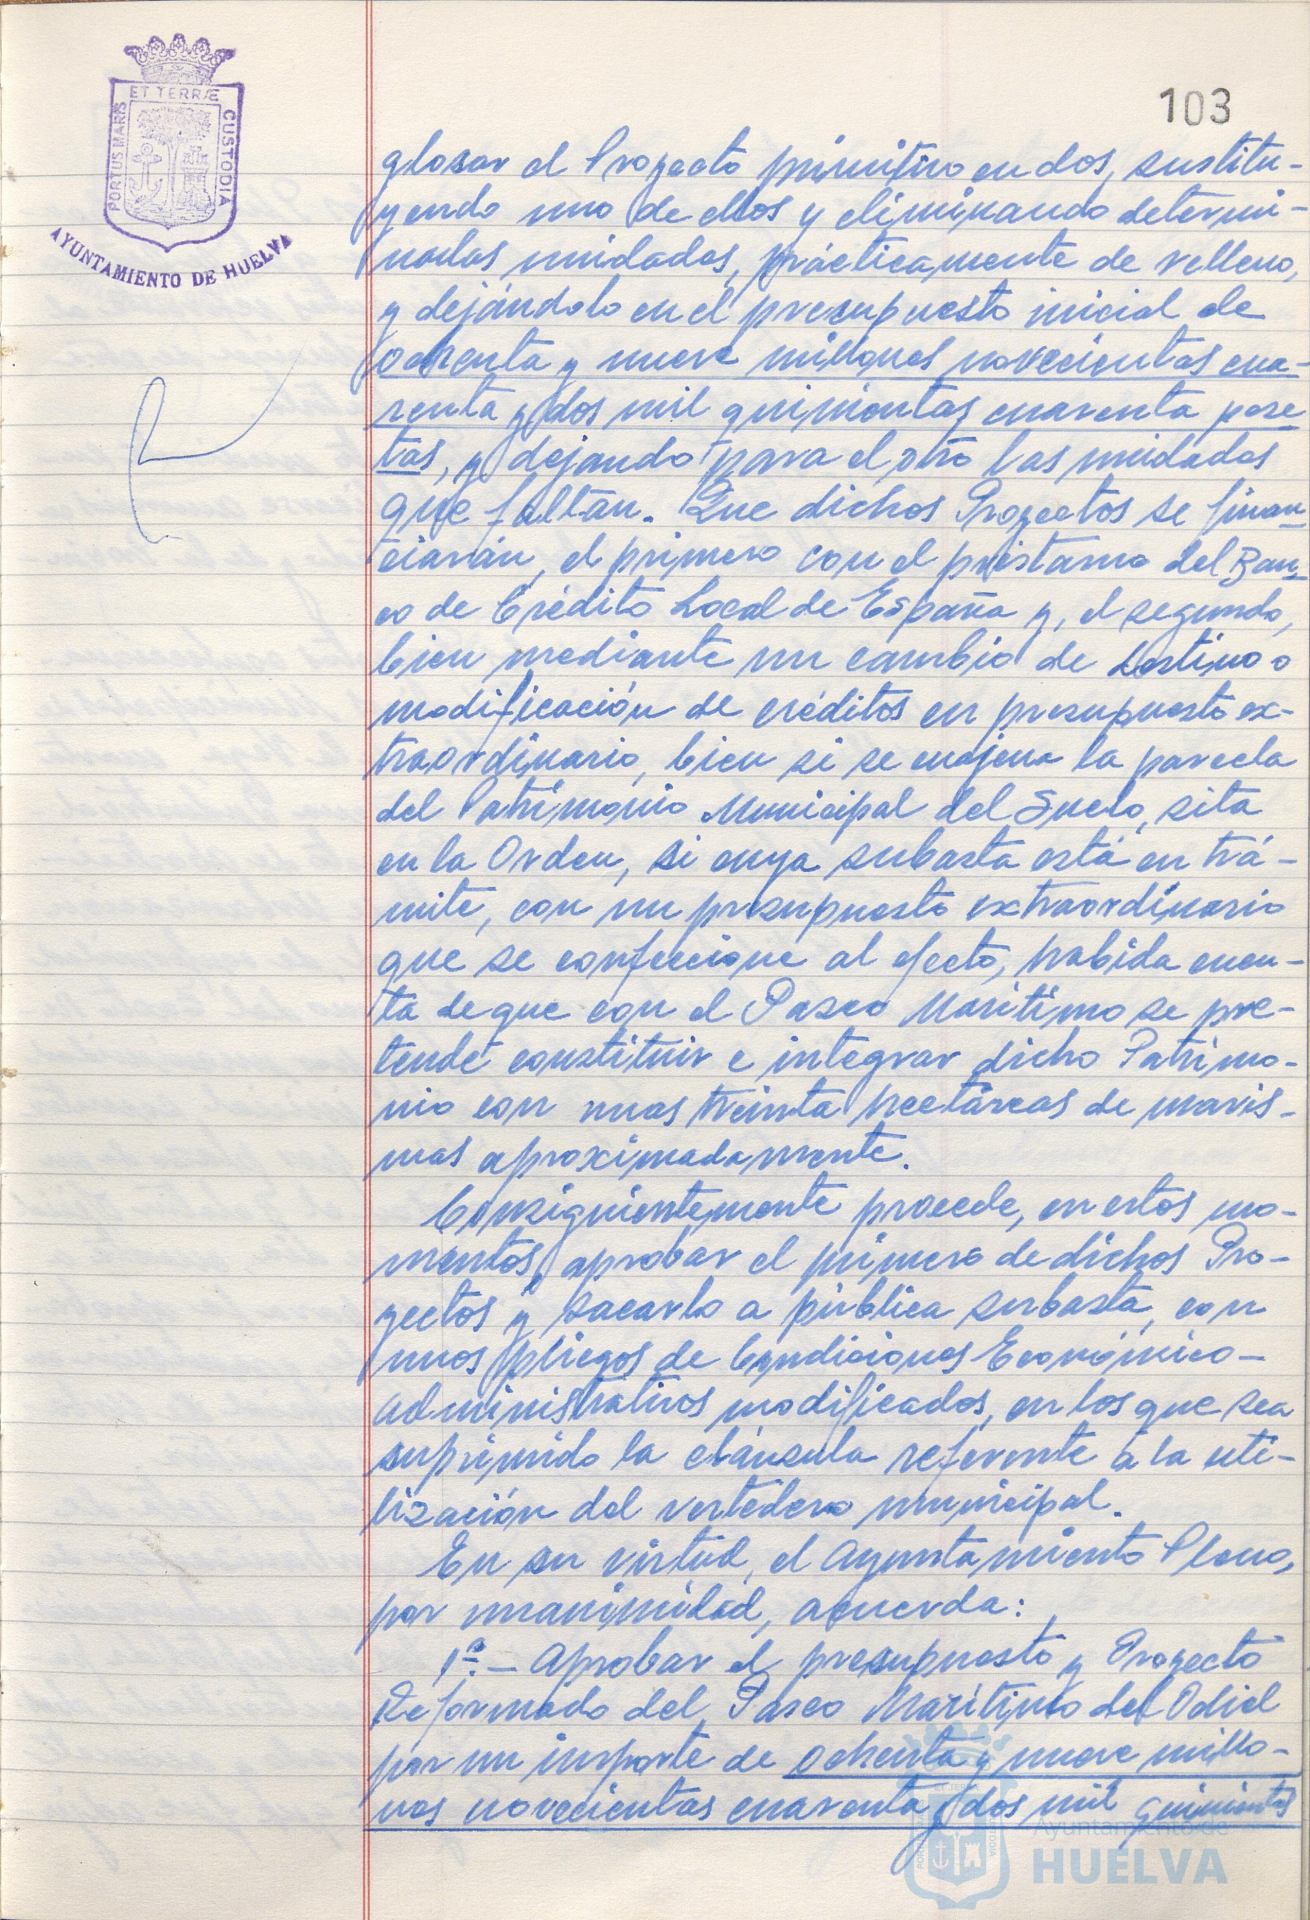 ET TERRÆ
PORTUS MARIS
CUSTODIA
AYUNTAMIENTO DE HUELVA
103
glosar el Proyecto primitivo en dos, sustitu-
yendo uno de ellos y eliminando determi-
nadas unidades, prácticamente de relleno,
y dejándolo en el presupuesto inicial de
ochenta y nueve millones novecientas cua-
renta y dos mil quinientas cuarenta pese
tas, y dejando para el otro las unidades
que faltan. Que dichos Proyectos se finan
ciarán, el primero con el préstamo del Ban
co de Crédito Local de España y, el segundo,
bien mediante un cambio de destino o
modificación de créditos en presupuesto ex-
traordinario, bien si se enajena la parcela
del Patrimonio Municipal del Suelo, sita
en la Orden, si cuya subasta está en trá-
mite, con un presupuesto extraordinario
que se confeccione al efecto, habida cuen-
ta de que con el Paseo Marítimo se pre-
tende constituir e integrar dicho Patrimo-
nio con unas treinta hectáreas de maris-
mas aproximadamente.
Consiguientemente procede, en estos mo-
mentos, aprobar el primero de dichos Pro-
yectos y sacarlo a pública subasta, con
unos pliegos de Condiciones Económico-
administrativos modificados, en los que sea
suprimido la cláusula referente a la uti-
lización del vertedero municipal.
En su virtud, el Ayuntamiento Pleno,
por unanimidad, acuerda:
1º.- Aprobar el presupuesto y Proyecto
Reformado del Paseo Marítimo del Odiel
por un importe de ochenta y nueve millo-
nes novecientas cuarenta y dos mil quinientas
Ayuntamiento de
HUELVA